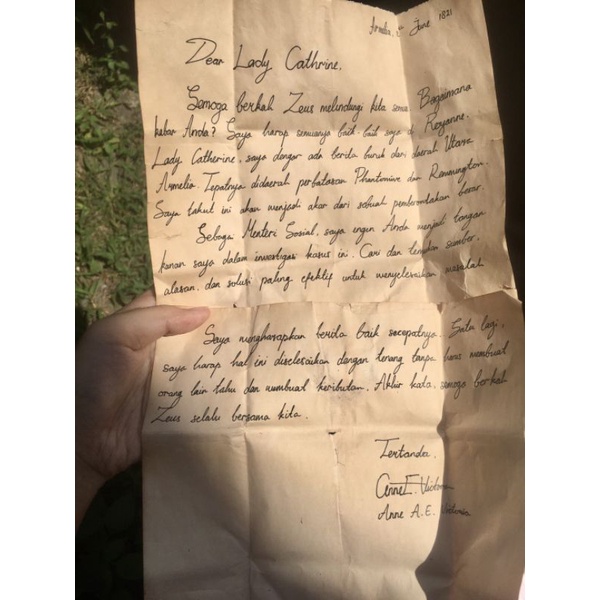 Armelia, 1st June 1821
Dear Lady Cathrine,
Semoga berkah Zeus melindungi kita semua. Bagaimana
kabar Anda? Saya harap semuanya baik-baik saja di Rosyanne.
Lady Catherine, saya dengar ada berita buruk dari daerah Utara
Armelia. Tepatnya didaerah perbatasan Phantomive dan Remmington.
Saya takut ini akan menjadi akar dari sebuah pemberontakan besar.
Sebagai Menteri Sosial, saya ingin Anda menjadi tangan
kanan saya dalam investigasi kasus ini. Cari dan temukan sumber,
alasan, dan solusi paling efektif untuk menyelesaikan masalah
Saya mengharapkan berita baik secepatnya. Satu lagi,
saya harap hal ini diselesaikan dengan tenang tanpa harus membuat
orang lain tahu dan membuat keributan. Akhir kata, semoga berkah
Zeus selalu bersama kita.
Tertanda,
Anne E. Victoria
Anne A.E. Victoria